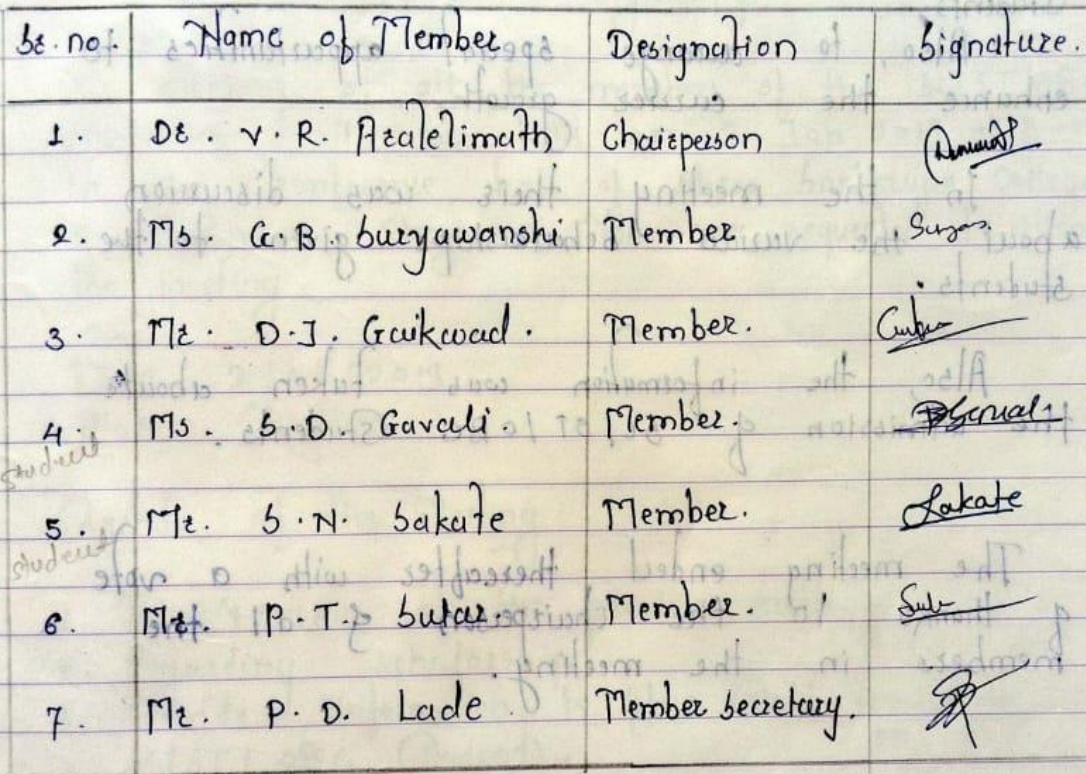 Sr. no. Name of Member Designation Signature.
1. Dr. V. R. Aralelimath Chairperson
2. Ms. G. B. Suryawanshi Member
3. Mr. D. J. Gaikwad. Member.
4. Ms. S. D. Gavali. Member.
student
5. Mr. S. N. Sakate Member. Sakate
student
6. Mr. P. T. Sutar. Member.
7. Mr. P. D. Lade Member Secretary.